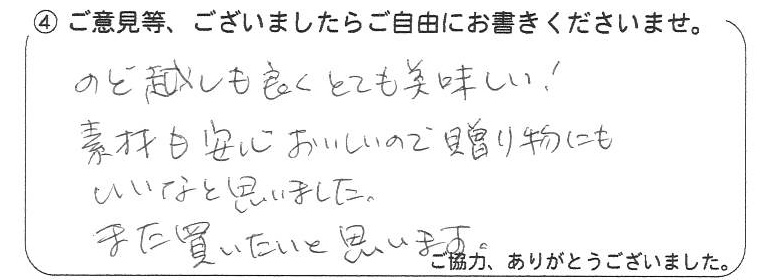 ④ ご意見等、ございましたらご自由にお書きくださいませ。
のど越しも良くとても美味しい！
素材も安心おいしいので贈り物にも
いいなと思いました。
また買いたいと思います。
ご協力、ありがとうございました。